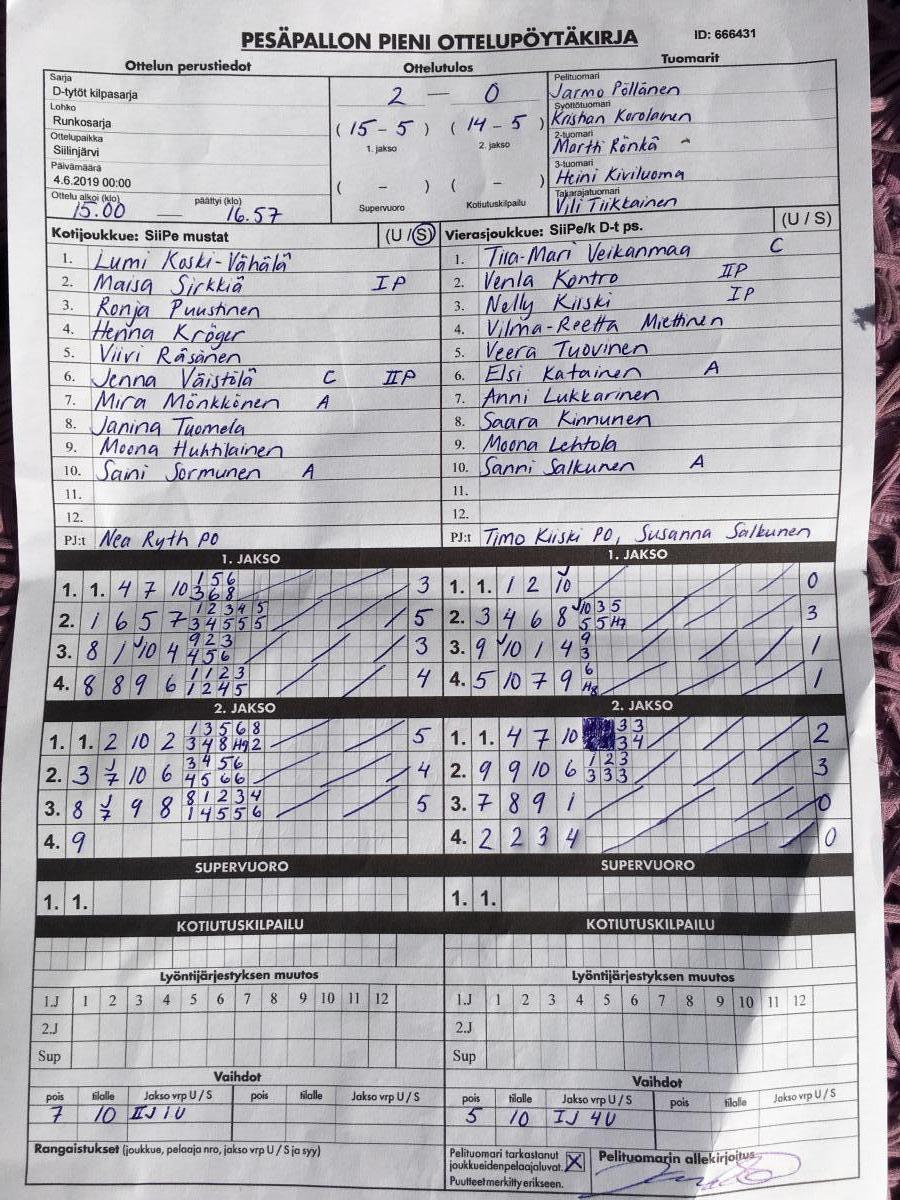 PESÄPALLON PIENI OTTELUPÖYTÄKIRJA ID: 666431
Ottelun perustiedot Ottelutulos Tuomarit
Sarja
D-tytöt kilpasarja
Lohko
Runkosarja
Ottelupaikka
Siilinjärvi
Päivämäärä
4.6.2019 00:00
Ottelu alkoi (klo) päättyi (klo)
15.00 — 16.57
2 — 0
( 15 - 5 ) ( 14 - 5 )
1. jakso 2. jakso
( - ) ( - )
Supervuoro Kotiutuskilpailu
Pelituomari
Jarmo Pöllänen
Syöttötuomari
Krishan Korolainen
2-tuomari
Martti Rönkä
3-tuomari
Heini Kiviluoma
Takarajatuomari
Vili Tiikkainen
Kotijoukkue: SiiPe mustat (U / S)
1. Lumi Koski-Vähälä
2. Maisa Sirkkiä IP
3. Ronja Puustinen
4. Henna Kröger
5. Viivi Räsänen
6. Jenna Väistölä C IIP
7. Mira Mönkkönen A
8. Janina Tuomela
9. Moona Huhtilainen
10. Saini Sormunen A
11.
12.
PJ:t Nea Ryth PO
Vierasjoukkue: SiiPe/k D-t ps. (U / S)
1. Tiia-Mari Veikanmaa C
2. Venla Kontro IIP
3. Nelly Kiiski IP
4. Vilma-Reetta Miettinen
5. Veera Tuovinen
6. Elsi Katainen A
7. Anni Lukkarinen
8. Saara Kinnunen
9. Moona Lehtola
10. Sanni Salkunen A
11.
12.
PJ:t Timo Kiiski PO, Susanna Salkunen
1. JAKSO
1. 1. 4 7 10 1 5 6 3
3 6 8
2. 1 6 5 7 1 2 3 4 5 5
3 4 5 5 5
3. 8 1 J10 4 9 2 3 3
4 5 6
4. 8 8 9 6 1 1 2 3 4
1 2 4 5
1. JAKSO
1. 1. 1 2 J10 0
2. 3 4 6 8 J10 3 5 3
5 5 H7
3. 9 J10 1 4 9 1
3
4. 5 10 7 9 6 1
H8
2. JAKSO
1. 1. 2 10 2 1 3 5 6 8 5
3 4 8 H9 2
2. 3 J7 10 6 3 4 5 6 4
4 5 6 6
3. 8 J7 9 8 8 1 2 3 4 5
1 4 5 5 6
4. 9
2. JAKSO
1. 1. 4 7 10 3 3 2
3 4
2. 9 9 10 6 1 2 3 3
3 3 3
3. 7 8 9 1 0
4. 2 2 3 4 0
SUPERVUORO SUPERVUORO
1. 1. 1. 1.
KOTIUTUSKILPAILU KOTIUTUSKILPAILU
Lyöntijärjestyksen muutos
1.J 1 2 3 4 5 6 7 8 9 10 11 12
2.J
Sup
Lyöntijärjestyksen muutos
1.J 1 2 3 4 5 6 7 8 9 10 11 12
2.J
Sup
Vaihdot
pois tilalle Jakso vrp U / S pois tilalle Jakso vrp U / S
7 10 IIJ 1U
Vaihdot
pois tilalle Jakso vrp U / S pois tilalle Jakso vrp U / S
5 10 IJ 4U
Rangaistukset (joukkue, pelaaja nro, jakso vrp U / S ja syy)
Pelituomari tarkastanut
joukkueiden pelaajaluvat. X
Puutteet merkitty erikseen.
Pelituomarin allekirjoitus